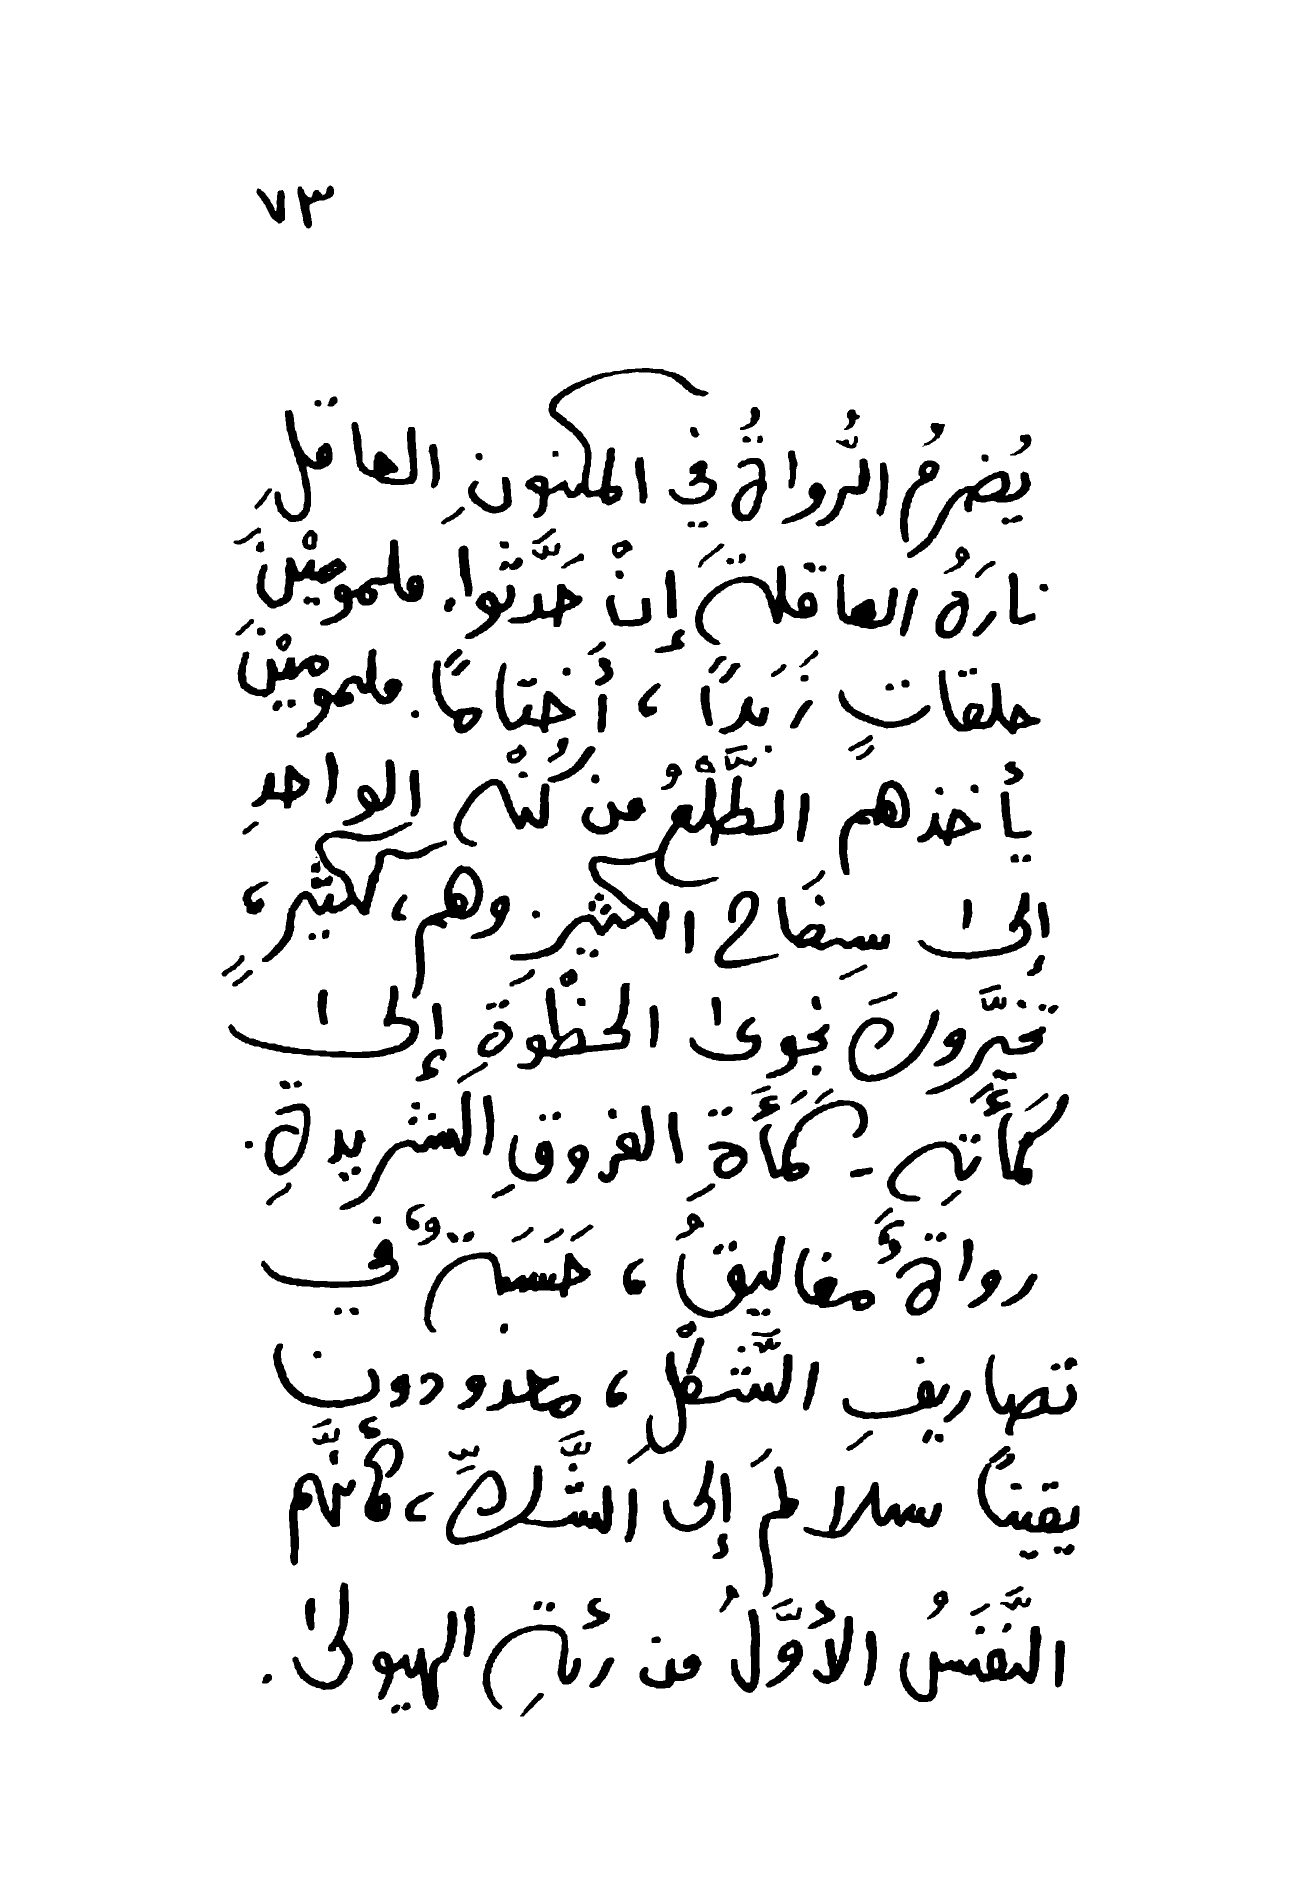 ٧٣
يُضرمُ الرُّواةُ في المكنونِ العاقلِ
نارَهُ العاقلةَ إنْ حَدَّثوا. ملمومِيْنَ
حلقاتٍ زَبَداً، أَختاماً. ملمومِيْنَ
يأخذهم الطَّلْعُ من كُنْهِ الواحدِ
إلىٰ سِفَاحِ الكثيرِ. وهم، كثيرٍ،
تخيَّروكَ نجوىٰ الحظْوةِ إلىٰ
كَمأَتهِ - كَمَأَةِ الفروقِ الشريدةِ.
رواةٌ مغاليقُ، حَسَبَةٌ في
تصاريفِ الشَّكْلِ، محدودون
يقيناً سلالمَ إلى الشَّكِّ، كأنَّهم
النَّفَسُ الأوَّلُ من رئةِ الهيولىٰ.